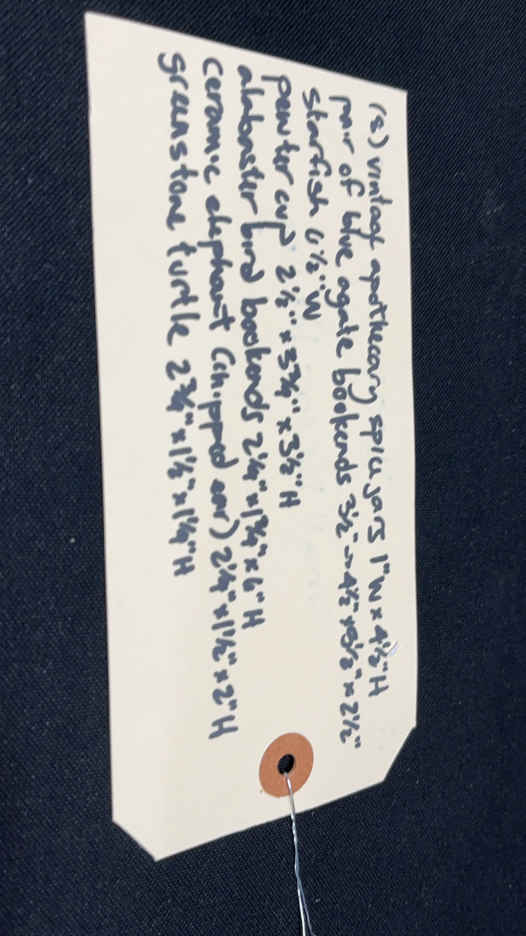 (8) vintage apothecary spice jars 1"W x 4½"H
pair of blue agate bookends 3½"→4½" x 5½" x 2½"
starfish 6½"W
pewter cup 2½" x 3¾" x 3½"H
alabaster bird bookends 2¼" x 1¾" x 6"H
ceramic elephant (chipped ear) 2¼" x 1½" x 2"H
greenstone turtle 2¾" x 1½" x 1¼"H